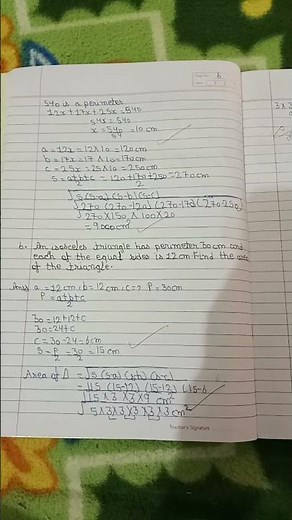 Page No. 6
540 is a perimeter
12x+17x+25x=540
54x=540
x=540/54=10cm
a=12x=12×10=120cm
b=17x=17×10=170cm
c=25x=25×10=250cm
S=a+b+c/2=120+170+250/2=270cm
√S(S-a)(S-b)(S-c)
√270(270-120)(270-170)(270-250)
√270×150×100×20
=9000cm²
6. An isosceles triangle has perimeter 30cm and
each of the equal sides is 12cm. Find the area
of the triangle.
Ans: a=12cm, b=12cm, c=? P=30cm
P=a+b+c/2
30=12+12+c
30=24+c
c=30-24=6cm
S=P/2=30/2=15cm
Area of Δ=√S(S-a)(S-b)(S-c)
=√15(15-12)(15-12)(15-6
√15×3×3×9 cm²
√5×3×3×3×3×3cm²
Teacher's Signature